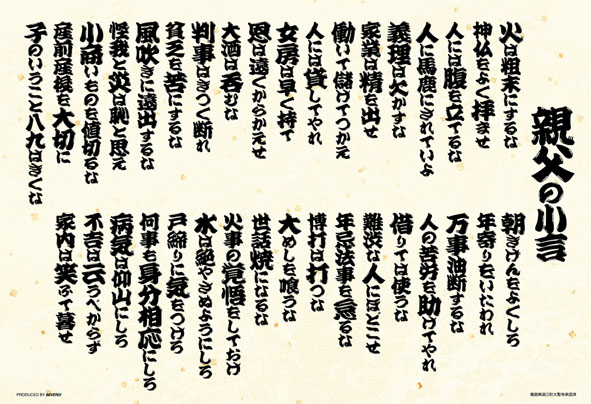 親父の小言
火は粗末にするな
神仏をよく拝ませ
人には腹を立てるな
人に馬鹿にされていよ
義理は欠かすな
家業は精を出せ
働いて儲けてつかえ
人には貸してやれ
女房は早く持て
恩は遠くからかえせ
大酒は呑むな
判事はきつく断れ
貧乏を苦にするな
風吹きに遠出するな
怪我と災は恥と思え
小商いものを値切るな
産前産後を大切に
子のいうこと八九はきくな
朝きげんをよくしろ
年寄りをいたわれ
万事油断するな
人の苦労を助けてやれ
借りては使うな
難渋な人にほどこせ
年忌法事を怠るな
博打は打つな
大めしを喰うな
世話焼になるな
火事の覚悟をしておけ
水は絶やさぬようにしろ
戸締りに気をつけろ
何事も身分相応にしろ
病気は仰山にしろ
不吉は云うべからず
家内は笑ふて暮せ
PRODUCED BY BEVERLY
福島県浪江町大聖寺承認済